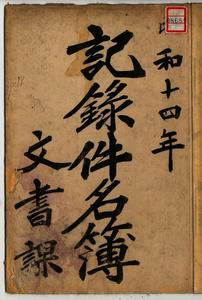 昭和十四年
記錄件名簿
文書課